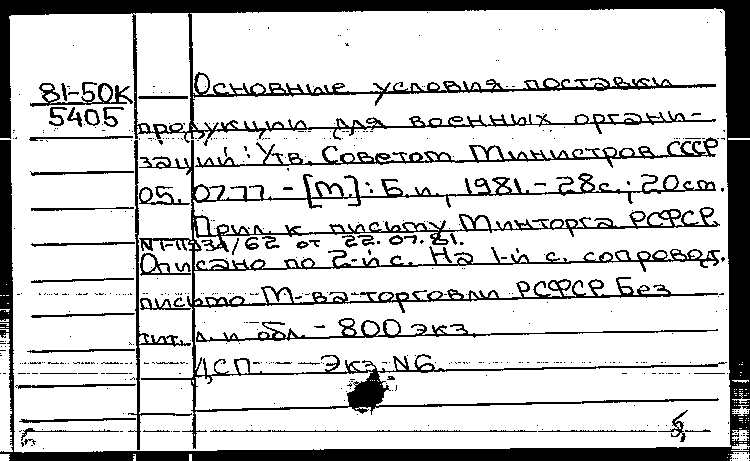 81-50К
5405
Основные условия поставки
продукции для военных органи-
заций: Утв. Советом Министров СССР
05.07.77. - [М.]: Б.и., 1981. - 28с.; 20см.
Прил. к письму Минторга РСФСР
от 22.07.81.
Описано по 2-й с. На 1-й с. сопровод.
письмо М-ва торговли РСФСР Без
тит. л. и обл. - 800 экз.
ДСП. Экз. N6.
Б